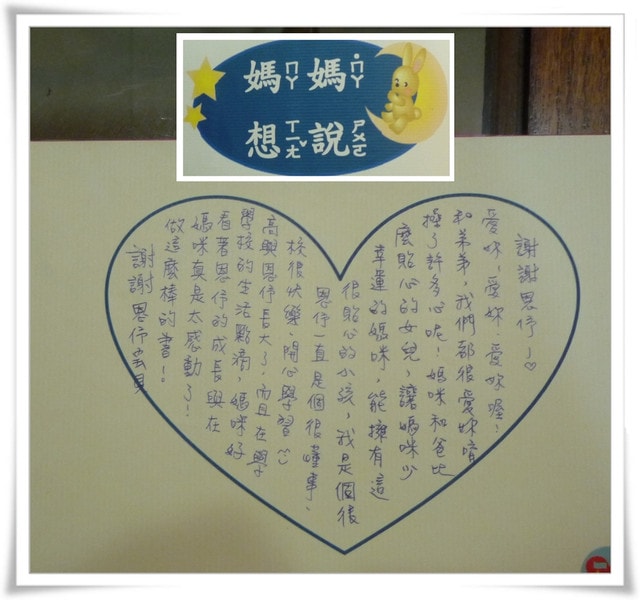 媽ㄇㄚ媽˙ㄇㄚ
想ㄒㄧㄤˇ說ㄕㄨㄛ
謝謝恩伃寶貝
做這麼棒的書!!
媽咪真是太感動了!
看著恩伃的成長與在
學校的生活點滴,媽咪好
高興恩伃長大了!而且在學
校很快樂、開心學習^^
恩伃一直是個很懂事、
很貼心的小孩,我是個很
幸運的媽咪,能擁有這
麼貼心的女兒,讓媽咪少
擔了許多心呢!媽咪和爸比
和弟弟,我們都很愛妳唷
愛妳,愛妳,愛妳喔!
謝謝恩伃~♡